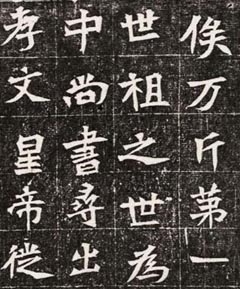 俟万斤第一
世祖之世為
中尚書尋出
孝文皇帝従